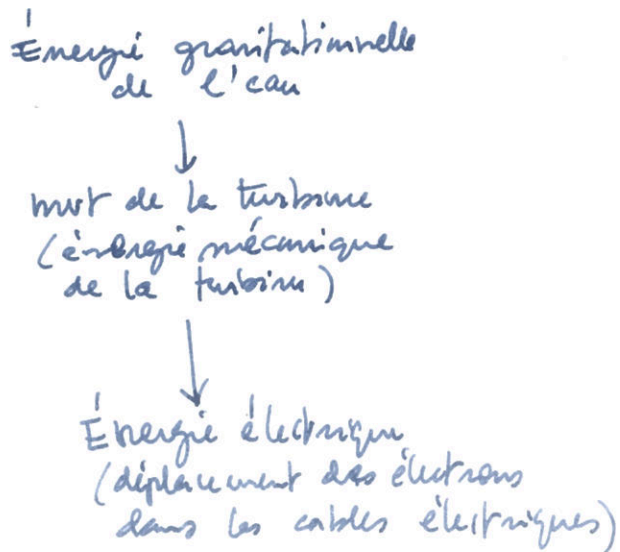 Énergie gravitationnelle
de l'eau
↓
mvt de la turbine
(énergie mécanique
de la turbine)
↓
Énergie électrique
(déplacement des électrons
dans les cables électriques)